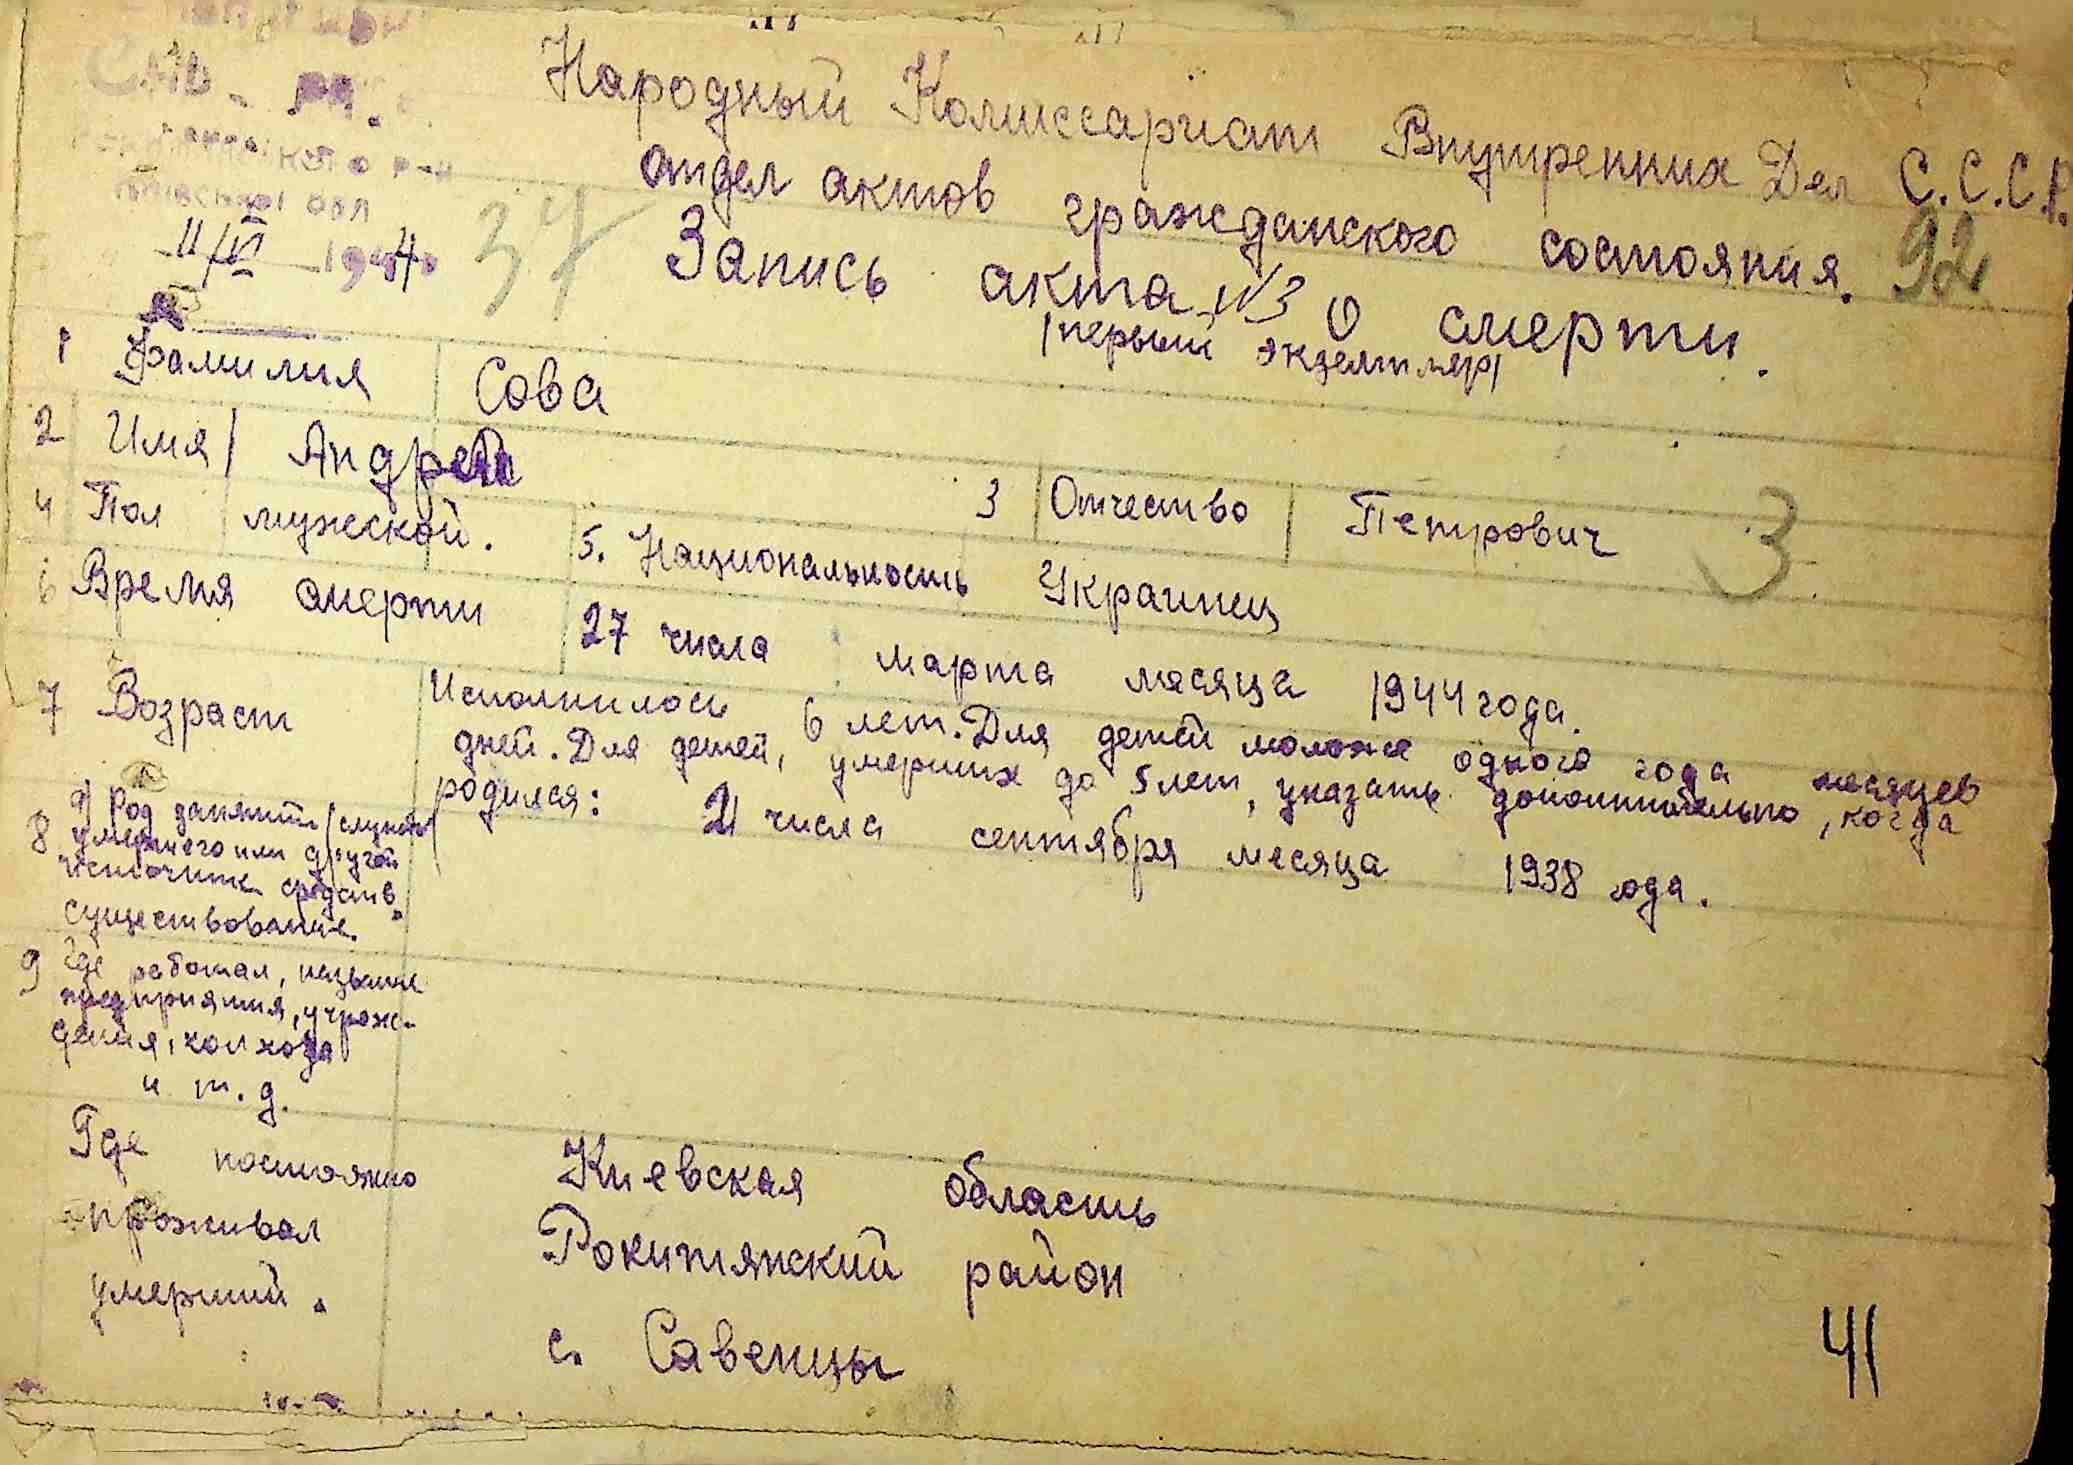 11/VI 1944
37
Народный Комиссариат Внутренних Дел С.С.С.Р.
отдел актов гражданского состояния. 92
Запись акта N3 о смерти.
/первый экземпляр/
1 Фамилия Сова
2 Имя / Андрей
3 Отчество Петрович 3
4 Пол мужской. 5. Национальность Украинец
6 Время смерти 27 числа марта месяца 1944 года.
7 Возраст Исполнилось 6 лет. Для детей моложе одного года месяцев
дней. Для детей, умерших до 5 лет, указать дополнительно, когда
родился: 21 числа сентября месяца 1938 года.
8 а) Род занятий /службы/
умершего или другой
источник средств
существование.
9 Где работал, название
предприятия, учреж-
дения, колхоза
и т.д.
Где постоянно
проживал
умерший.
Киевская область
Рокитянский район
с. Савенцы
41